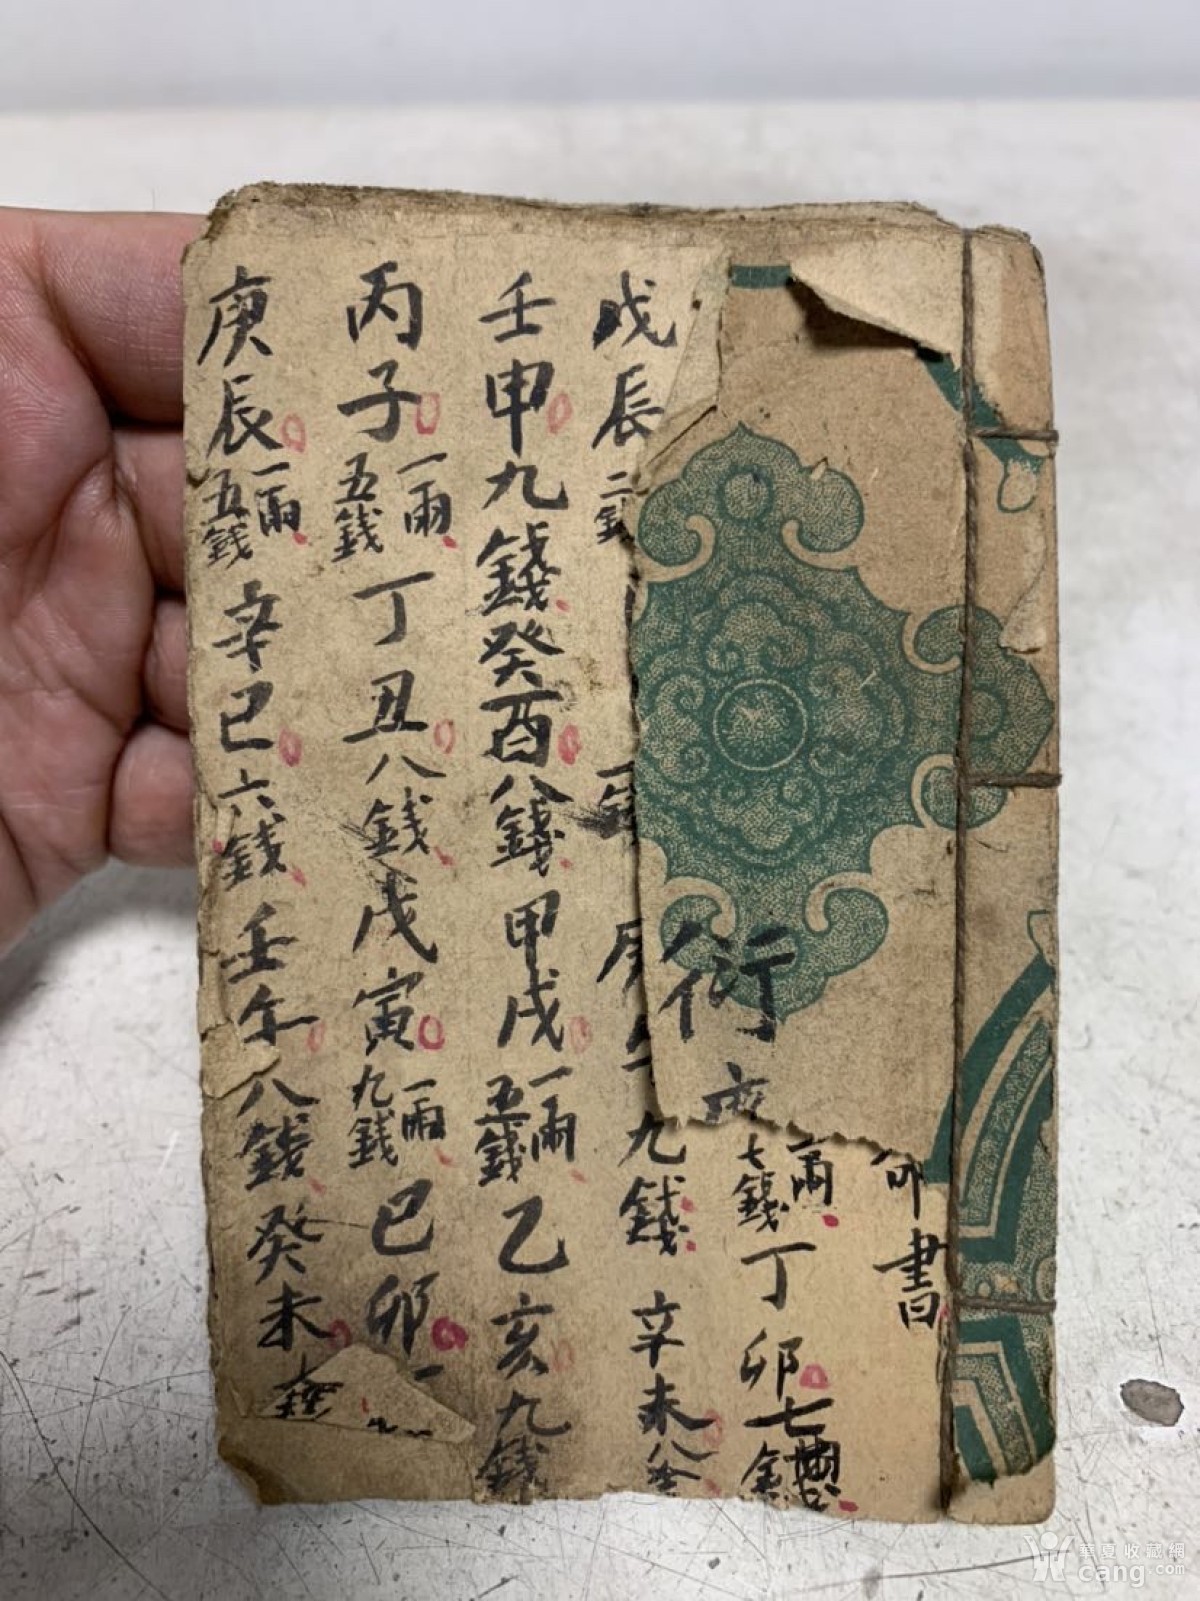 書
七錢 丁卯七
戊辰二錢
九錢辛未八
壬申九錢癸酉八錢甲戌一兩五錢乙亥九錢
丙子一兩五錢丁丑八錢戊寅一兩九錢己卯一
庚辰一兩五錢辛巳六錢壬午八錢癸未
衍
華夏收藏網
cang.com